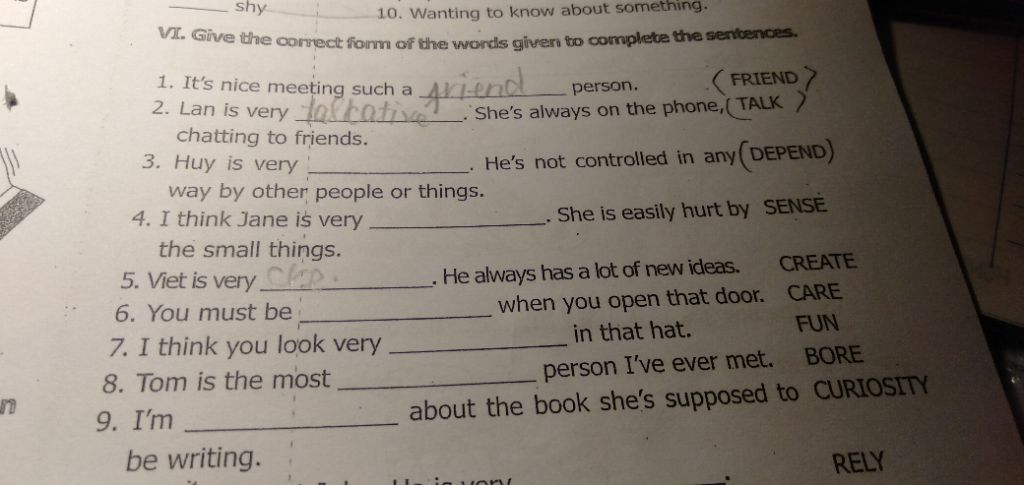 shy
10. Wanting to know about something.
VI. Give the correct form of the words given to complete the sentences.
1. It's nice meeting such a friend person. (FRIEND)
2. Lan is very talkative. She's always on the phone, (TALK)
chatting to friends.
3. Huy is very ____________. He's not controlled in any (DEPEND)
way by other people or things.
4. I think Jane is very ____________. She is easily hurt by SENSE
the small things.
5. Viet is very ____________. He always has a lot of new ideas. CREATE
6. You must be ____________ when you open that door. CARE
7. I think you look very ____________ in that hat. FUN
8. Tom is the most ____________ person I've ever met. BORE
9. I'm ____________ about the book she's supposed to CURIOSITY
be writing.
RELY